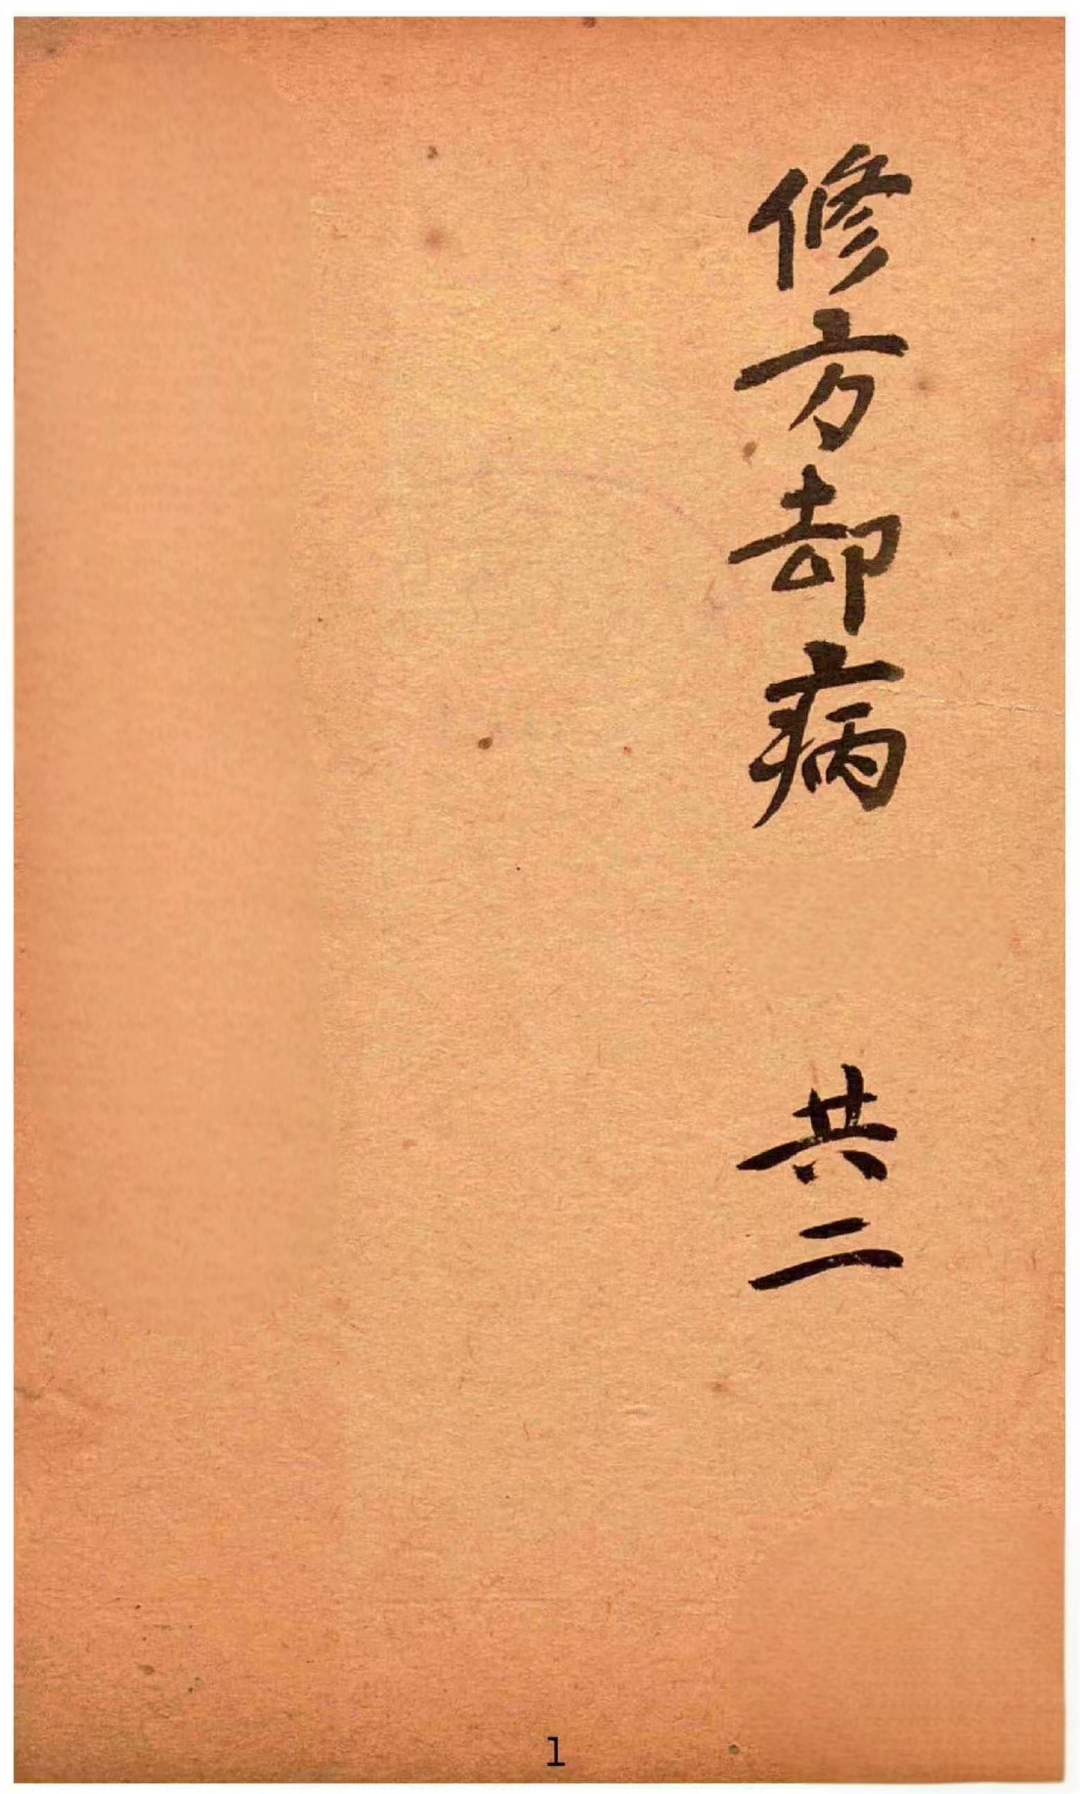 修方却病
共二
1